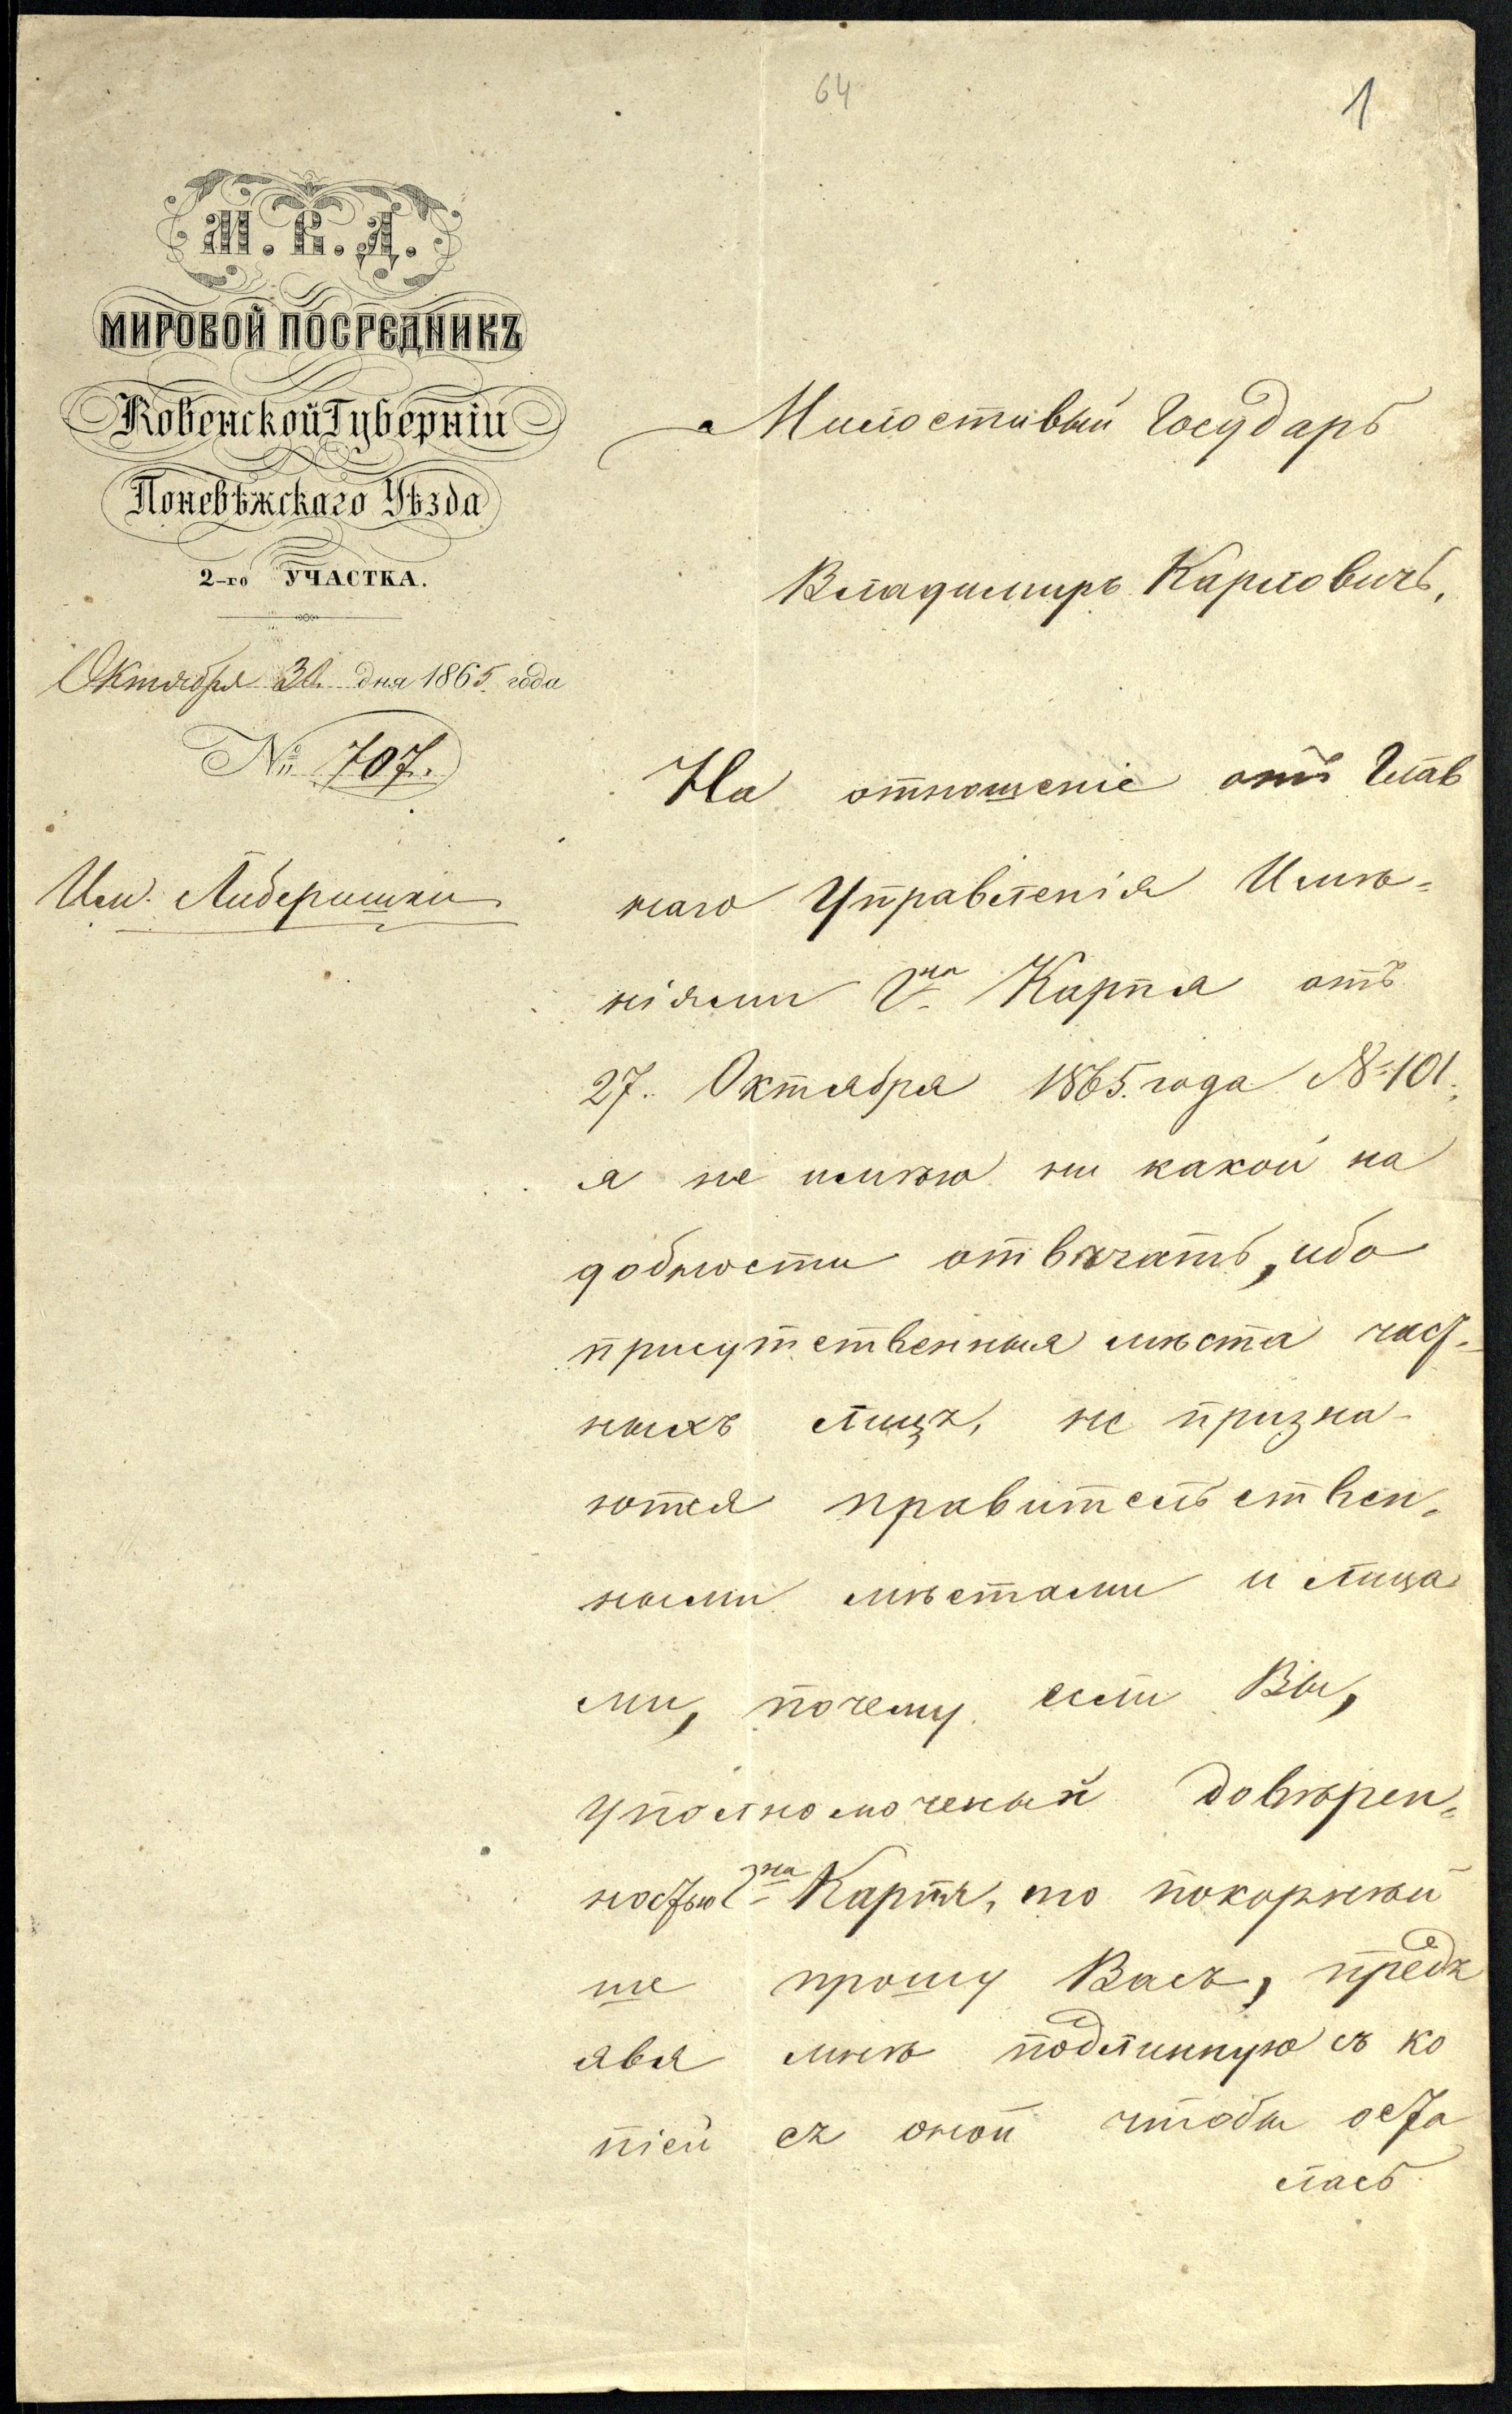 64
1
М. В. Д.
МИРОВОЙ ПОСРЕДНИКЪ
Ковенской Губерніи
Поневѣжскаго Уѣзда
2-го УЧАСТКА.
Октября 30. дня 1865. года
№ 707.
Им. Либеришки
Милостивый Государь
Владимиръ Карловичъ,
На отношеніе отъ Глав
наго Управленія Имѣ-
ніями Гна Карпя отъ
27. Октября 1865. года №101.
я не имѣю ни какой на
добности отвѣчать, ибо
присутственныя мѣста част-
ныхъ лицъ, не призна-
ются правительствен-
ными мѣстами и лица
ми, почему если Вы,
уполномоченый довѣрен-
ностью Гна Карпя, то покорнѣй
ше прошу Васъ, предъ
явя мнѣ подлинную съ ко
піей съ оной чтобы оста
лась